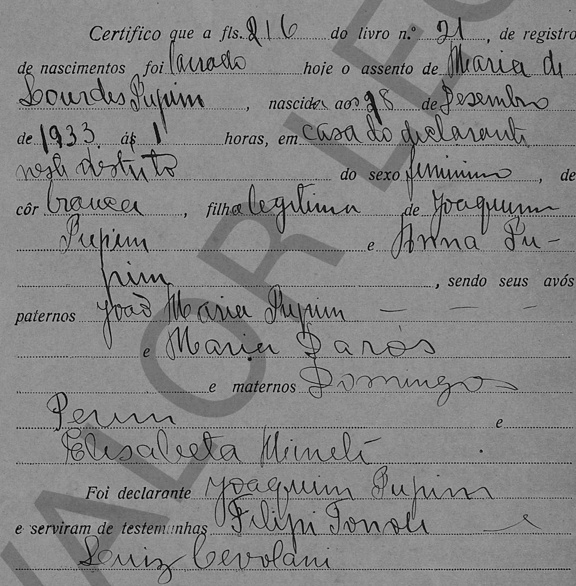 Certifico que a fls. 216 do livro n.º 21, de registro
de nascimentos foi lavrado hoje o assento de Maria de
Lourdes Pupim, nascida aos 28 de Dezembro
de 1933 ás 1 horas, em casa do declarante
neste distrito do sexo feminino, de
côr branca, filha legitima de Joaquim
Pupim e Anna Pu-
pim, sendo seus avós
paternos João Maria Pupim - - -
e Maria Darós
e maternos Domingos
Perin e
Elisabeta Mineti
Foi declarante Joaquim Pupim
e serviram de testemunhas Filipi Tonoli e
Luiz Cevolani
VALOR LEG